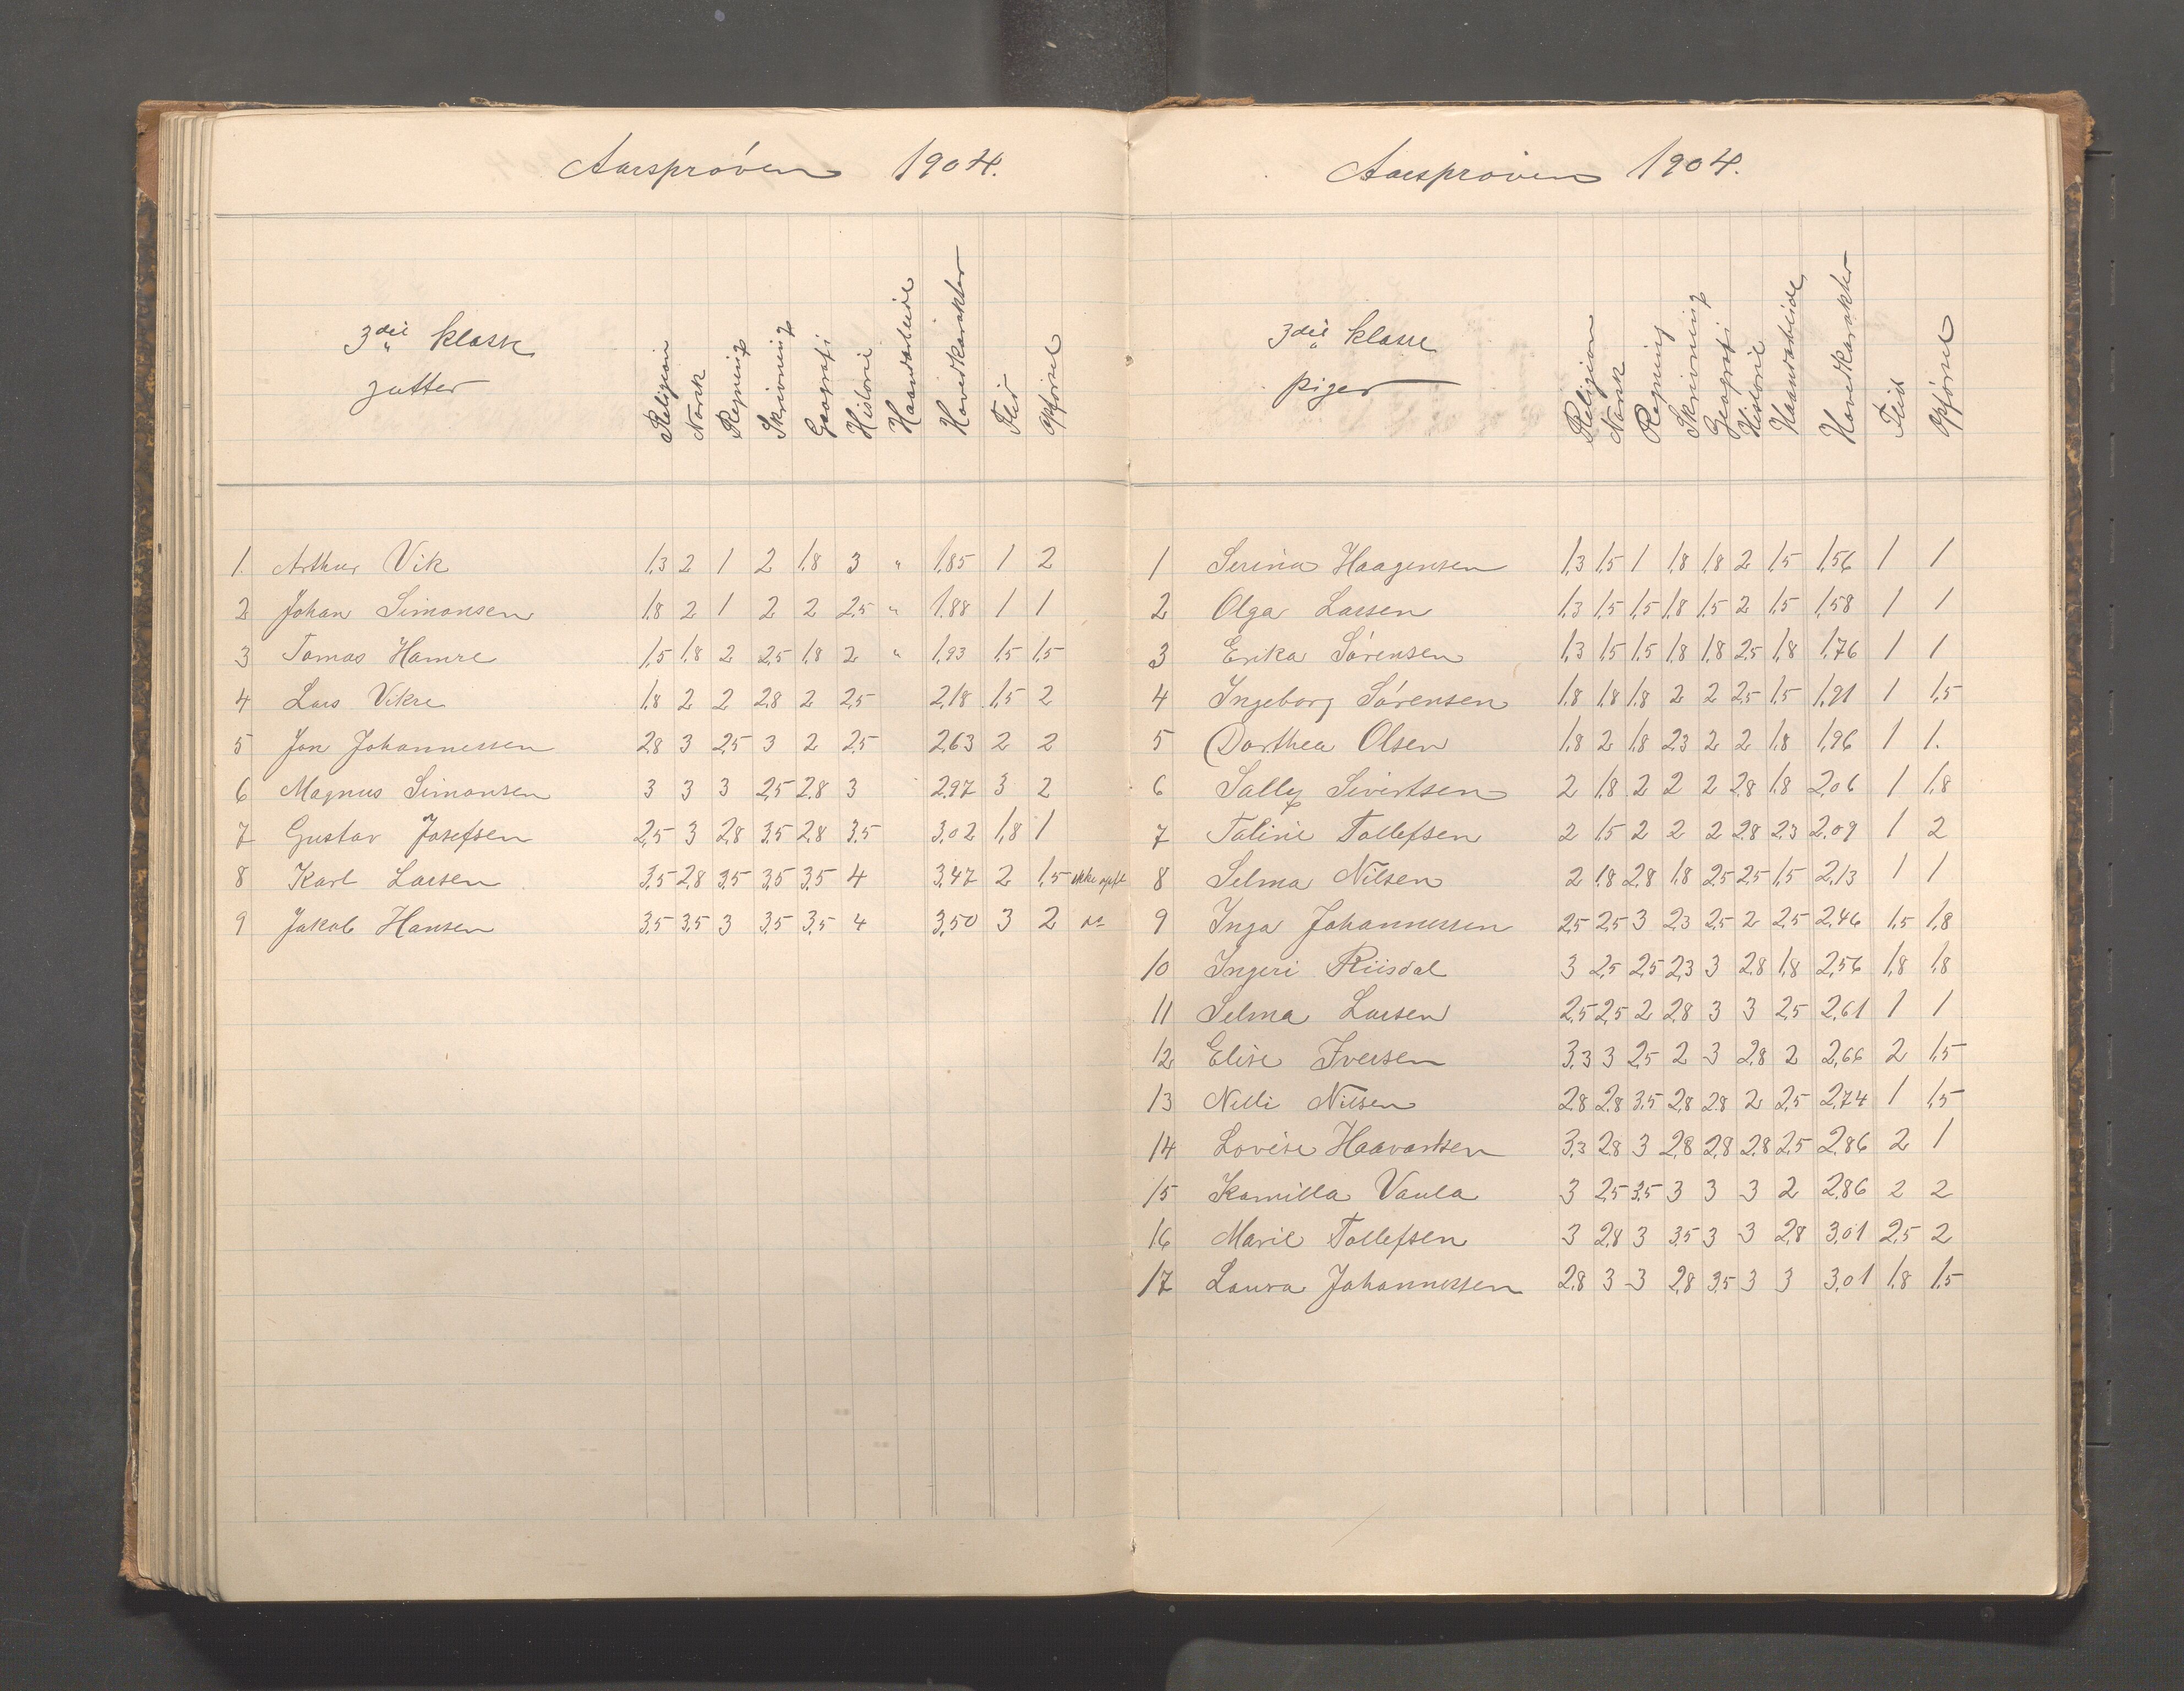 Aarsprøven 1904.
3die klasse
gutter
Religion Norsk Regning Skrivning Geografi Historie Haandarbeide Hovedkarakter Flid Opførsel
1. Arthur Vik 1,3 2 1 2 1,8 3 " 1,85 1 2
2 Johan Simonsen 1,8 2 1 2 2 2,5 " 1,88 1 1
3 Tomas Hamre 1,5 1,8 2 2,5 1,8 2 " 1,93 1,5 1,5
4 Lars Vikse 1,8 2 2 2,8 2 2,5 2,18 1,5 2
5 Jon Johannessen 2,8 3 2,5 3 2 2,5 2,63 2 2
6 Magnus Simonsen 3 3 3 2,5 2,8 3 2,97 3 2
7 Gustav Josefsen 2,5 3 2,8 3,5 2,8 3,5 3,02 1,8 1
8 Karl Larsen 3,5 2,8 3,5 3,5 3,5 4 3,47 2 1,5 ikke opfl
9 Jakob Hansen 3,5 3,5 3 3,5 3,5 4 3,50 3 2 do
Aarsprøven 1904.
3die klasse
piger
Religion Norsk Regning Skrivning Geografi Historie Haandarbeide Hovedkarakter Flid Opførsel
1 Serina Haagensen 1,3 1,5 1 1,8 1,8 2 1,5 1,56 1 1
2 Olga Larsen 1,3 1,5 1,5 1,8 1,5 2 1,5 1,58 1 1
3 Erika Sørensen 1,3 1,5 1,5 1,8 1,8 2,5 1,8 1,76 1 1
4 Ingeborg Sørensen 1,8 1,8 1,8 2 2 2,5 1,5 1,91 1 1,5
5 Dorthea Olsen 1,8 2 1,8 2,3 2 2 1,8 1,96 1 1.
6 Sally Sivertsen 2 1,8 2 2 2 2,8 1,8 2,06 1 1,8
7 Taline Tollefsen 2 1,5 2 2 2 2,8 2,3 2,09 1 2
8 Selma Nilsen 2 1,8 2,8 1,8 2,5 2,5 1,5 2,13 1 1
9 Inga Johannessen 2,5 2,5 3 2,3 2,5 2 2,5 2,46 1,5 1,8
10 Ingeri Riisdal 3 2,5 2,5 2,3 3 2,8 1,8 2,56 1,8 1,8
11 Selma Larsen 2,5 2,5 2 2,8 3 3 2,5 2,61 1 1
12 Elise Iversen 3,3 3 2,5 2 3 2,8 2 2,66 2 1,5
13 Nelli Nilsen 2,8 2,8 3,5 2,8 2,8 2 2,5 2,74 1 1,5
14 Lovise Haavartsen 3,3 2,8 3 2,8 2,8 2,8 2,5 2,86 2 1
15 Kamilla Vaula 3 2,5 3,5 3 3 3 2 2,86 2 2
16 Marie Tollefsen 3 2,8 3 3,5 3 3 2,8 3,01 2,5 2
17 Laura Johannessen 2,8 3 3 2,8 3,5 3 3 3,01 1,8 1,5